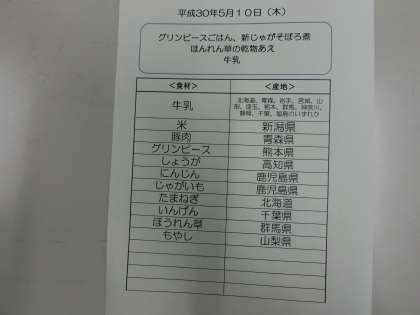 平成30年5月10日（木）
グリンピースごはん、新じゃがそぼろ煮
ほんれん草の乾物あえ
牛乳
＜食材＞ ＜産地＞
牛乳 北海道、青森、岩手、宮城、山
形、埼玉、栃木、群馬、神奈川、
静岡、千葉、福島のいずれか
米 新潟県
豚肉 青森県
グリンピース 熊本県
しょうが 高知県
にんじん 鹿児島県
じゃがいも 鹿児島県
たまねぎ 北海道
いんげん 千葉県
ほうれん草 群馬県
もやし 山梨県